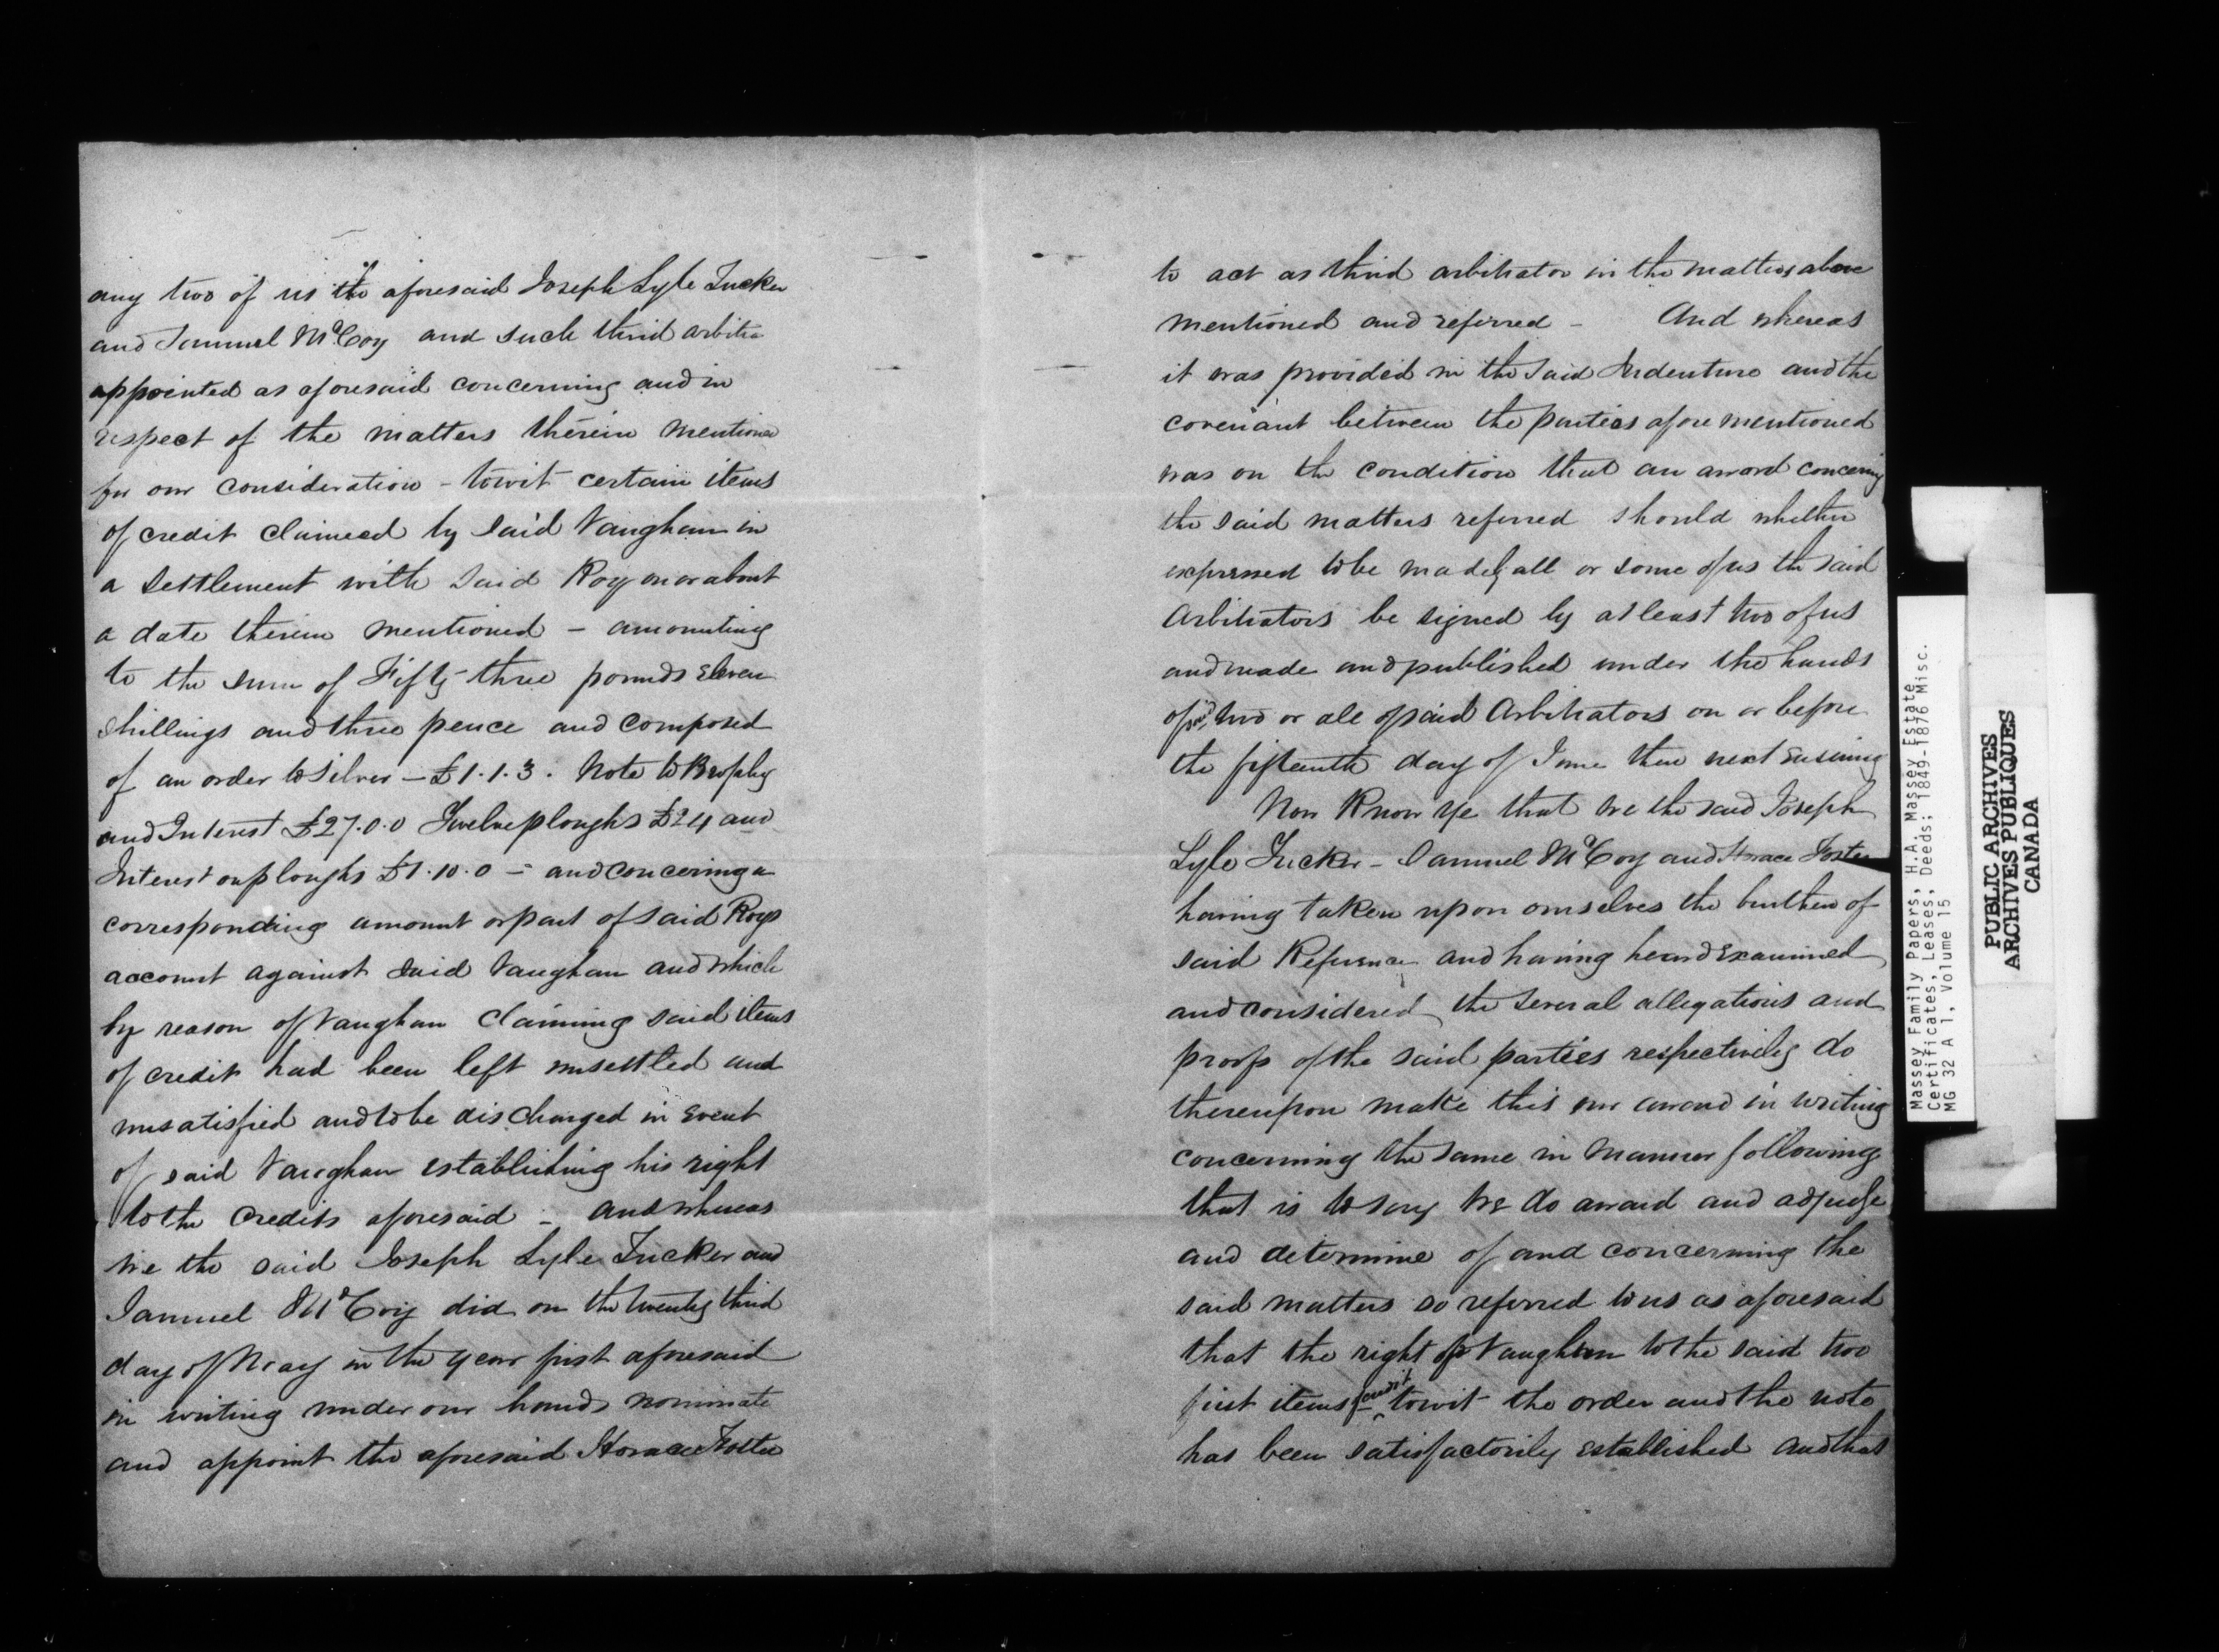 any two of us the aforesaid Joseph Lyle Tucker
and Samuel McCoy and such third arbitra
appointed as aforesaid concerning and in
respect of the matters therein mentioned
for our consideration - towit certain items
of credit claimed by said Vaughan in
a settlement with said Roy on or about
a date therein mentioned - amounting
to the sum of Fifty-three pounds Eleven
shillings and three pence and composed
of an order to Silver - £1.1.3. Note to Brophy
and Interest £27.0.0 Twelve ploughs £24 and
Interest on ploughs £1.10.0 - and concering a
corresponding amount or part of said Roys
account against said Vaughan and which
by reason of Vaughan Claiming said items
of credit had been left unsettled and
unsatisfied and to be discharged in Event
of said Vaughan establishing his right
to the Credits aforesaid - and whereas
We the said Joseph Lyle Tucker and
Samuel McCoy did on the twenty third
day of May in the year first aforesaid
in writing under our hands nominate
and appoint the aforesaid Horace Foster
to act as third arbitrator in the matters above
mentioned and referred - And whereas
it was provided in the said Indenture and the
covenant between the parties afore mentioned
was on the condition that an award concerning
the said matters referred should whether
expressed to be made by all or some of us the said
Arbitrators be signed by at least two of us
and made and published under the hands
of said two or all of said Arbitrators on or before
the fifteenth day of June then next Ensuing
Now Know Ye that We the said Joseph
Lyle Tucker - Samuel McCoy and Horace Foster
having taken upon ourselves the burthen of
said Reference and having heard Examined
and considered the several allegations and
proofs of the said parties respectively do
thereupon make this our award in writing
concerning the same in manner following
that is to say We do award and adjudge
and determine of and concerning the
said matters so referred to us as aforesaid
that the right of Vaughan to the said two
first items of credit towit the order and the note
has been satisfactorily established and that
Massey Family Papers, H.A. Massey Estate
Certificates, Leases, Deeds; 1849-1876 Misc.
MG 32 A 1, Volume 15
PUBLIC ARCHIVES
ARCHIVES PUBLIQUES
CANADA